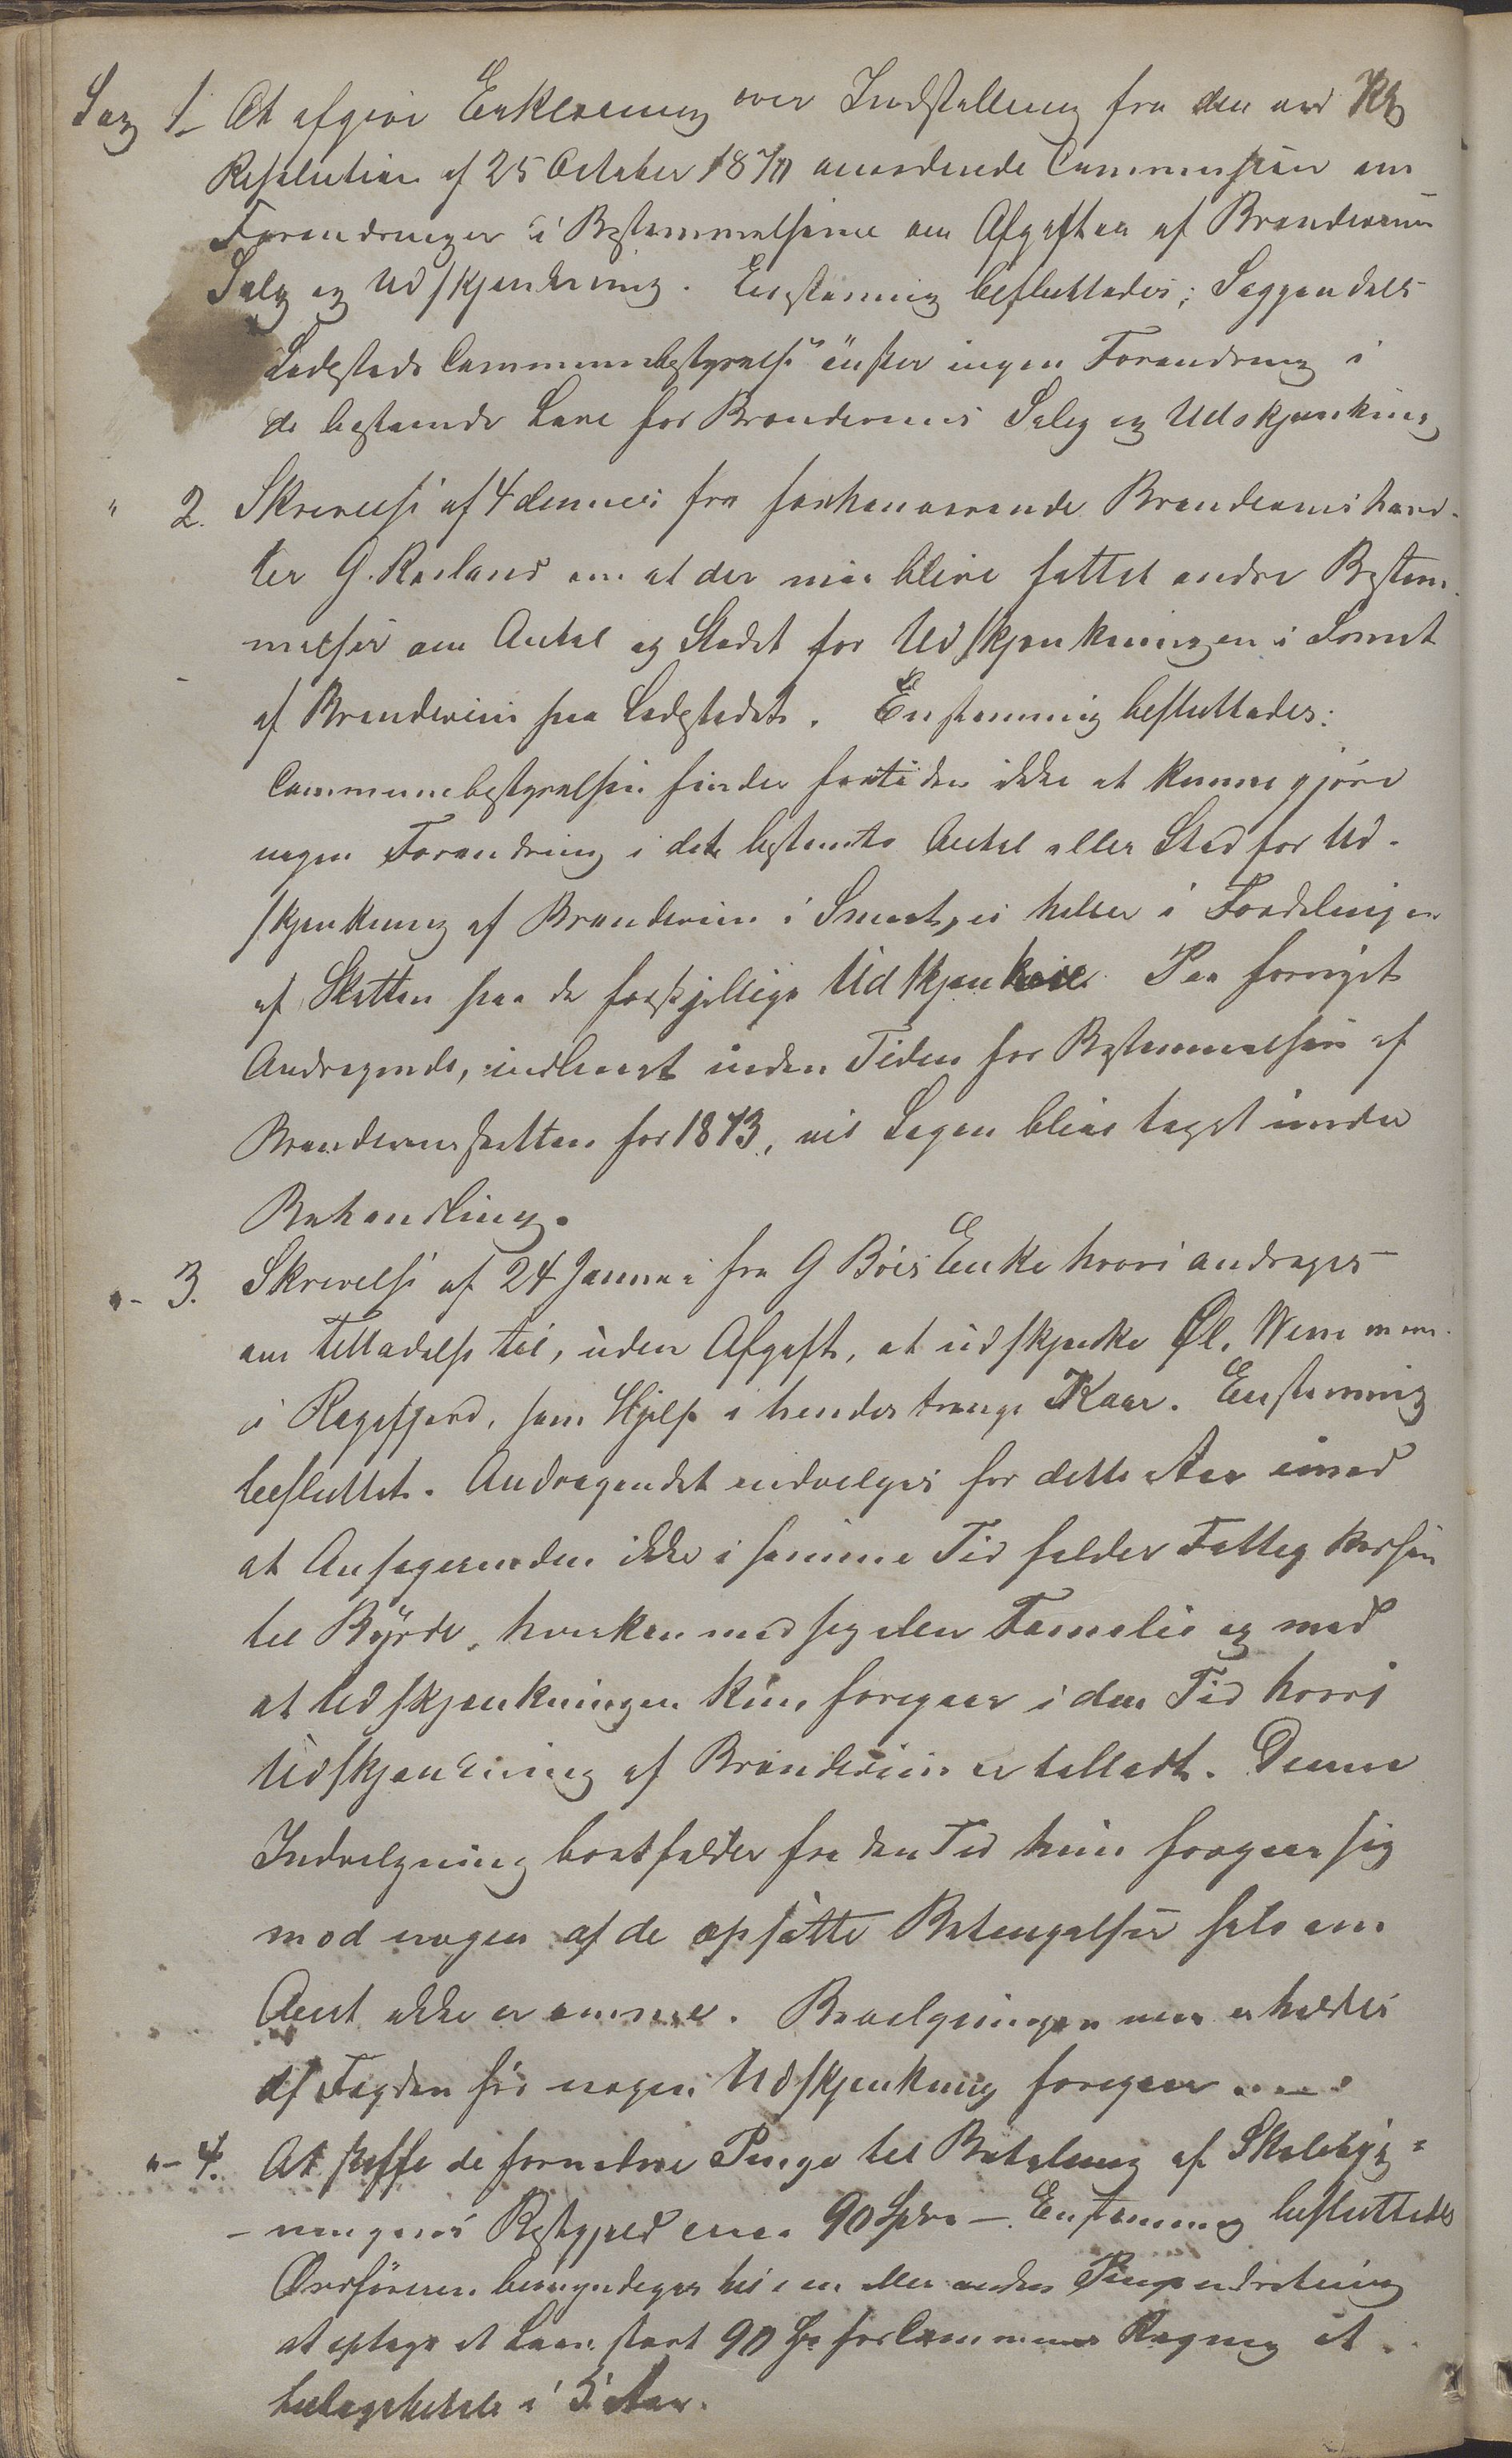 Sag 1. At afgive Erklæring over Indstilling fra den ved Kgl
Resolution af 25 October 1870 anordnede Commission om
Forandringer i Bestemmelserne om Afgiften af Brændeviins
Salg og Udskjænkning. Enstemmig besluttedes: Soggendals
Ladesteds Communebestyrelse ønsker ingen Forandring i
de bestaaende Love for Brændeviins Salg og Udskjænkning
" 2. Skrivelse af 4 dennes fra forhenværende Brændeviinshand-
ler G. Rosland om at der maa blive fattet andre Bestem-
melser om Antal og Stedet for Udskjænkningen i Smaat
af Brændeviin paa Ladestedet. Enstemmig besluttedes:
Communebestyrelsen finder fortiden ikke at kunne gjøre
nogen Forandring i det bestemte Antal eller Sted for Ud-
skjænkning af Brændeviin i Smaat, ei heller i Fordelingen
af Skatten paa de forskjellige Udskjænkere. Paa fornyet
Andragende, indleveret inden Tiden for Bestemmelsen af
Brændeviinsskatten for 1873, vil Sagen blive taget under
Behandling.
"- 3. Skrivelse af 24 Januar fra G Böes Enke hvori andrages
om Tilladelse til, uden Afgift, at udskjænke Øl, Viin m m.
i Rægefjord, som Hjelp i hendes trange Kaar. Enstemmig
besluttet. Andragendet indvilges for dette Aar imod
at Ansøgerinden ikke i samme Tid falder Fattigkassen
til Byrde, hverken med sig eller Familie og med
at Udskjænkningen kun foregaar i den Tid hvori
Udskjænkning af Brændeviin er tilladt. Denne
Indvilgning bortfalder fra den Tid hun forgaar sig
mod nogen af de opsatte Betingelser selv om
Aaret ikke er omme. Bevilgningen maa erholdes
af Fogden før nogen Udskjænkning foregaar
"- 4. At skaffe de fornødne Penge til Betaling af Skolebyg=
- ningens Restgjeld circa 90 Spd. Enstemmig besluttedes
Ordføreren bemyndiges til i en eller anden Pengeindretning
at optage et Laan stort 90 Spd for Communens Regning at
tilbagebetale i 5 Aar.